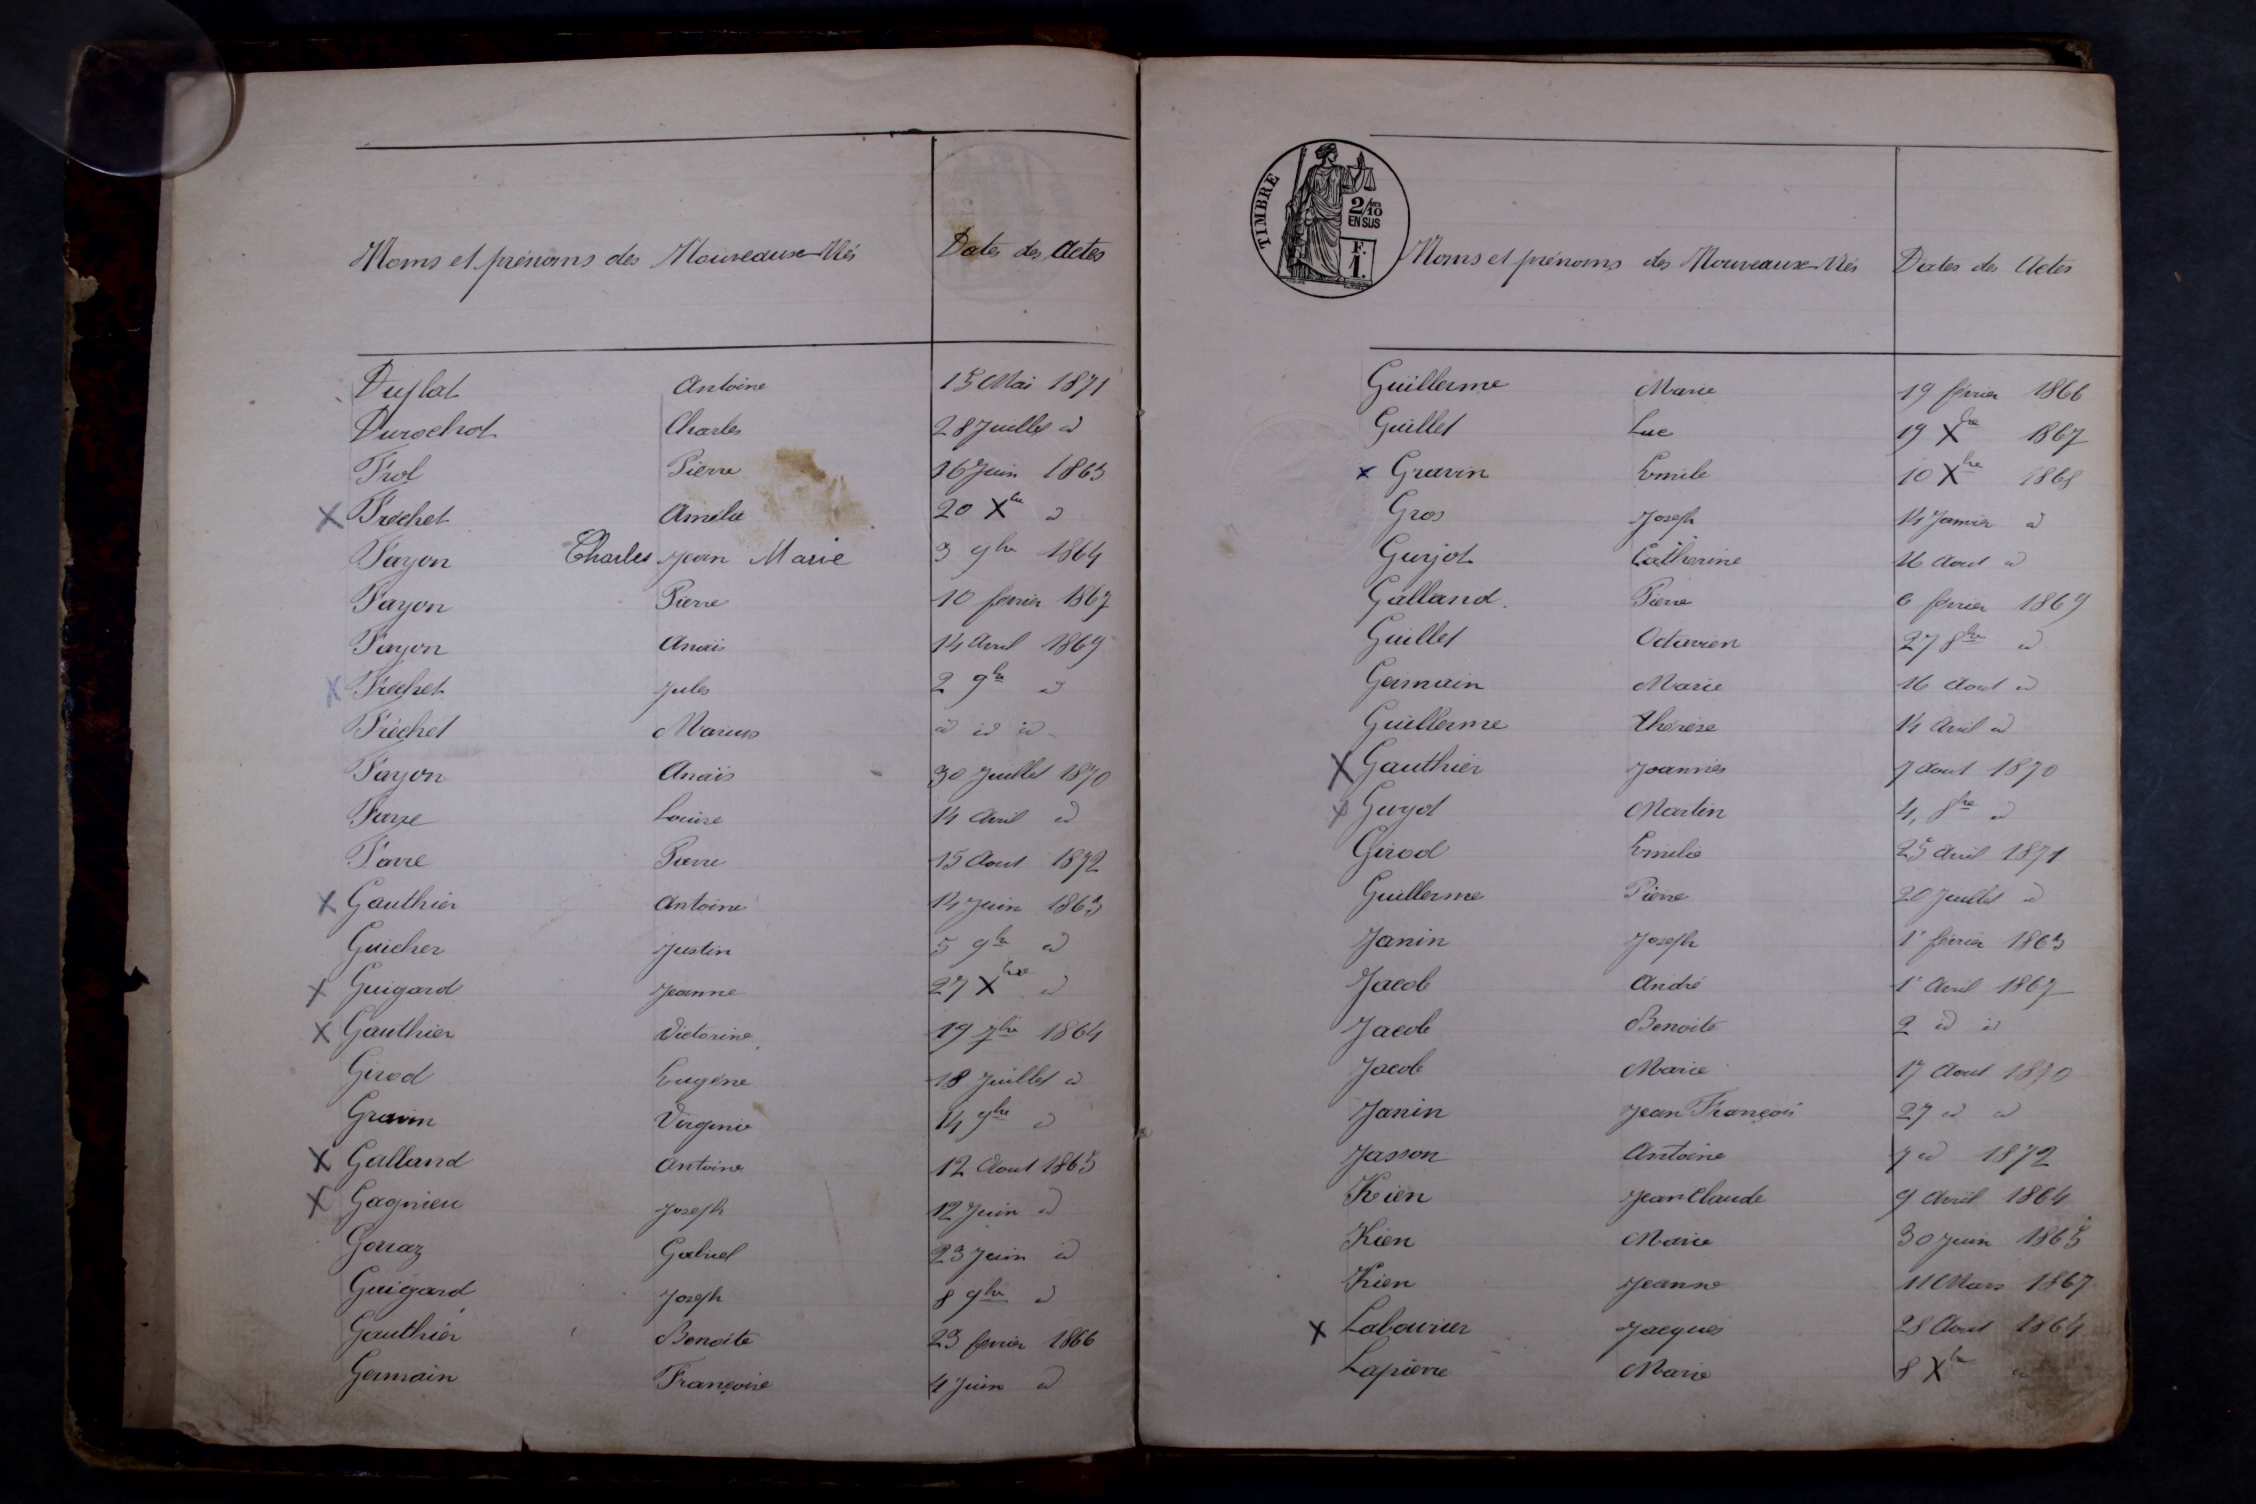 Noms et prénoms des Nouveaux-Nés Dates des Actes
Duplat Antoine 15 Mai 1871
Durochat Charles 28 Juillet id
Frol Pierre 16 Juin 1863
X Fréchet Amélie 20 Xbre id
Fayon Charles Jean Marie 3 9bre 1864
Fayon Pierre 10 fevrier 1867
Fayon Anaïs 14 Avril 1869
X Fréchet Jules 2 9bre id
Fréchet Marius id id id
Fayon Anaïs 30 Juillet 1870
Favre Louise 14 Avril id
Favre Pierre 15 Aout 1872
X Gauthier Antoine 14 Juin 1863
Guicher Justin 5 9bre id
X Guigard Jeanne 27 Xbre id
X Gauthier Victorine 19 7bre 1864
Girod Eugène 18 Juillet id
Gravin Virginie 14 9bre id
X Galland Antoine 12 Aout 1865
X Gagnieu Joseph 12 Juin id
Gorraz Gabriel 23 Juin id
Guigard Joseph 8 9bre id
Gauthier Benoite 23 fevrier 1866
Germain Françoise 4 Juin id
TIMBRE
2/10
EN SUS
F.
1.
Noms et prénoms des Nouveaux-Nés Dates des Actes
Guillerme Marie 19 février 1866
Guillet Luc 19 Xbre 1867
x Gravin Emile 10 Xbre 1868
Gros Joseph 14 Janvier id
Guyot Catherine 16 Aout id
Galland Pierre 6 fevrier 1869
Guillet Octavien 27 8bre id
Germain Marie 16 Aout id
Guillerme Thérèse 14 Avril id
X Gauthier Joannès 7 Aout 1870
X Guyot Martin 4 8bre id
Girod Emilie 25 Avril 1871
Guillerme Pierre 20 Juillet id
Janin Joseph 1er février 1863
Jacob André 1er Avril 1867
Jacob Benoite 2 id id
Jacob Marie 17 Aout 1870
Janin Jean François 27 id id
Jasson Antoine 7 id 1872
Kien Jean Claude 9 Avril 1864
Kien Marie 30 Juin 1865
Kien Jeanne 11 Mars 1867
X Labourier Jacques 28 Aout 1864
Lapierre Marie 8 Xbre id